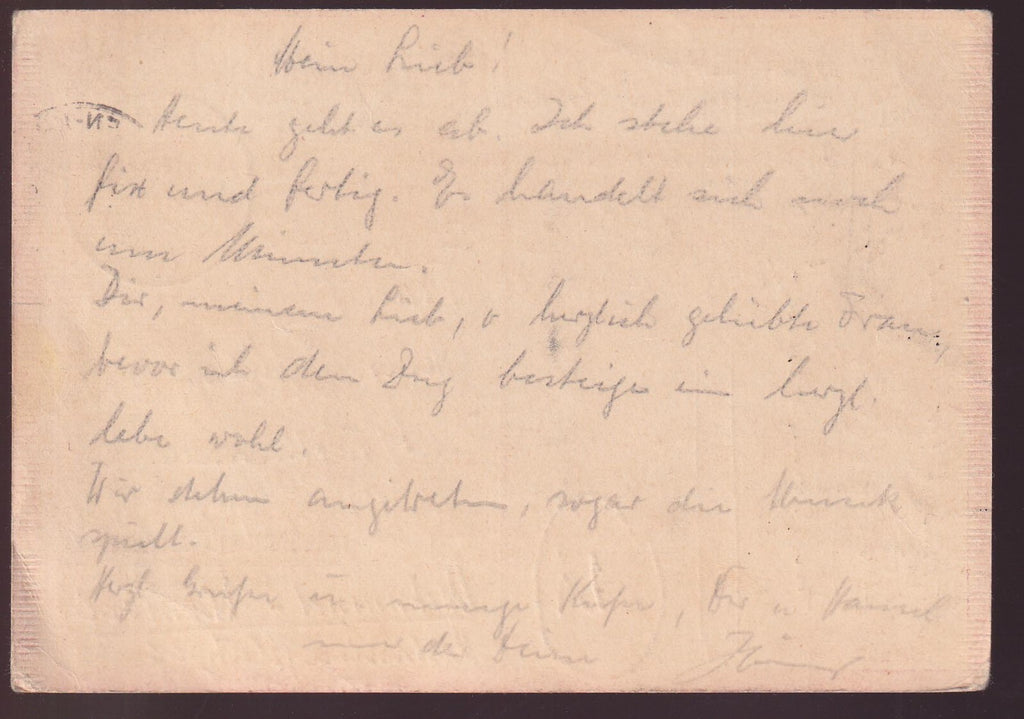 Mein Lieb!
Heute geht es ab. Ich stehe hier
fix und fertig. Es handelt sich noch
um Minuten.
Dir, meinem Lieb, o herzlich geliebte Frau,
bevor ich den Zug besteige ein herzl.
lebe wohl.
Wir stehen angetreten, sogar die Musik
spielt.
Herzl Grüße u. innige Küsse, Dir u Hansel
nur der Deine